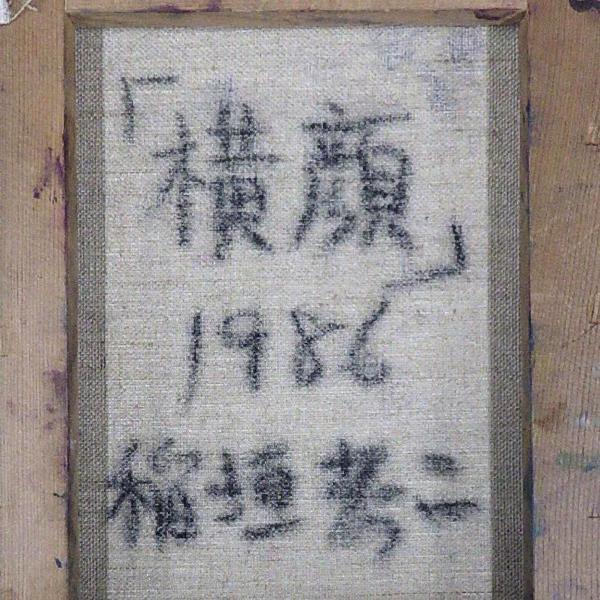 「横顔」
1986
稲垣考二